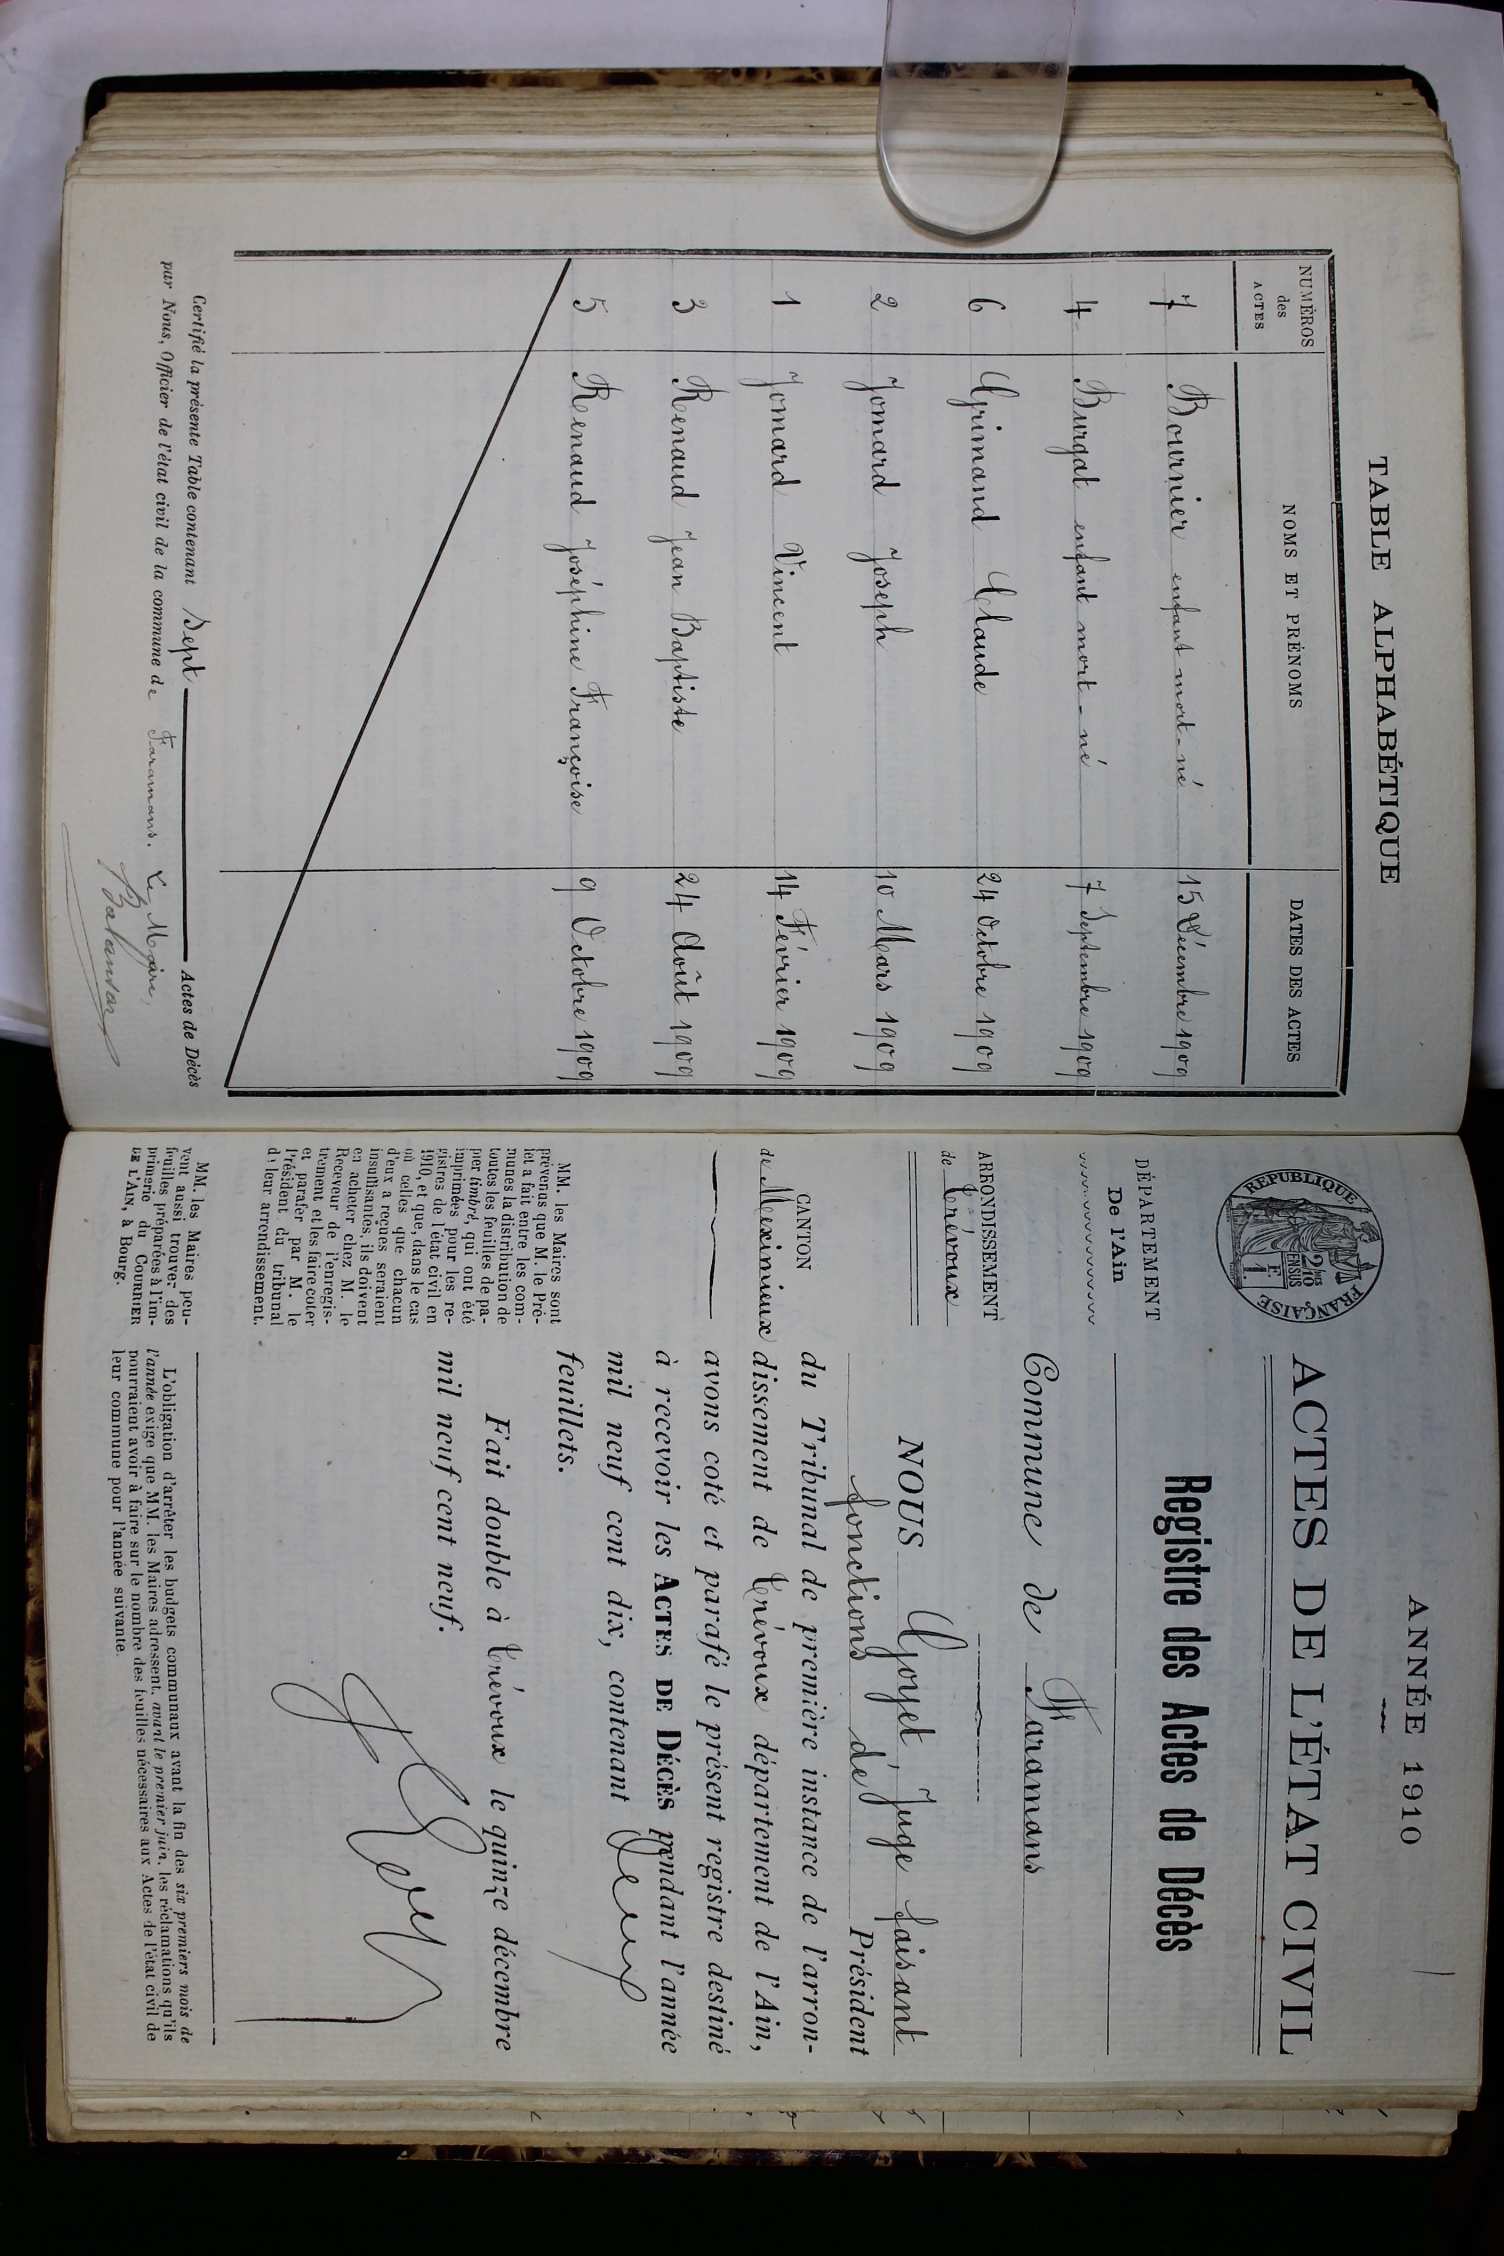 TABLE ALPHABÉTIQUE
NUMÉROS des ACTES NOMS ET PRÉNOMS DATES DES ACTES
7 Bournier enfant mort-né 15 Décembre 1909
4 Burgat enfant mort-né 7 Septembre 1909
6 Grimand Claude 24 Octobre 1909
2 Jomard Joseph 10 Mars 1909
1 Jomard Vincent 14 Février 1909
3 Renaud Jean Baptiste 24 Août 1909
5 Renaud Joséphine Françoise 9 Octobre 1909
Certifié la présente Table contenant Sept Actes de Décès
par Nous, Officier de l'état civil de la commune de Faramans. Le Maire,
ANNÉE 1910
RÉPUBLIQUE FRANÇAISE
2/10 EN SUS
1 F.
ACTES DE L'ÉTAT CIVIL
Registre des Actes de Décès
DÉPARTEMENT
De l'Ain
ARRONDISSEMENT
de Trévoux
CANTON
de Meximieux
MM. les Maires sont
prévenus que M. le Pré-
fet a fait entre les com-
munes la distribution de
toutes les feuilles de pa-
pier timbré, qui ont été
imprimées pour les re-
gistres de l'état civil en
1910, et que, dans le cas
où celles que chacun
d'eux a reçues seraient
insuffisantes, ils doivent
en acheter chez M. le
Receveur de l'enregis-
trement et les faire coter
et parafer par M. le
Président du tribunal
de leur arrondissement.
MM. les Maires peu-
vent aussi trouver des
feuilles préparées à l'im-
primerie du COURRIER
DE L'AIN, à Bourg.
Commune de Faramans
NOUS Goyet, Juge faisant
fonctions de Président
du Tribunal de première instance de l'arron-
dissement de Trévoux département de l'Ain,
avons coté et parafé le présent registre destiné
à recevoir les ACTES DE DÉCÈS pendant l'année
mil neuf cent dix, contenant Deux
feuillets.
Fait double à Trévoux le quinze décembre
mil neuf cent neuf.
L'obligation d'arrêter les budgets communaux avant la fin des six premiers mois de
l'année exige que MM. les Maires adressent, avant le premier juin, les réclamations qu'ils
pourraient avoir à faire sur le nombre des feuilles nécessaires aux Actes de l'état civil de
leur commune pour l'année suivante.